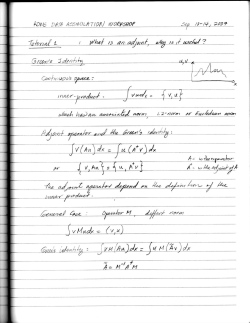 ROMS DATA ASSIMILATION WORKSHOP
Tutorial 1 : What is an adjoint, why is it useful?
Green's Identity
u,v
Continuous space:
x
inner-product: ∫ v u dx = {v, u}
which has an associated norm, L2-norm or Euclidean norm
Adjoint operator and the Green's identity:
∫ v (Au) dx = ∫ u (A*v) dx
or {v, Au} = {u, A*v}
A := the operator
A* := the adjoint of A
The adjoint operator depends on the definition of the
inner product.
General Case: operator M, diff't norm
∫ v M u dx = ⟨v, u⟩
identity: ∫ v M (Au) dx = ∫ u M (Ãv) dx
Ã = M⁻¹A*M